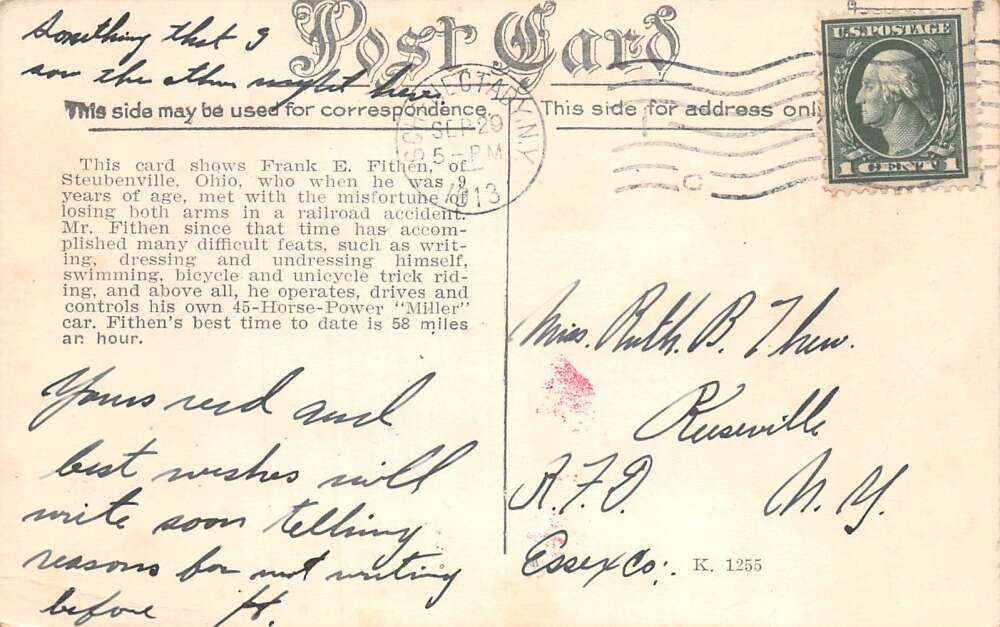 Post Card
Something that I
saw the other night here.
This side may be used for correspondence.
This side for address only
U.S. POSTAGE
1 CENT 1
SCHENECTADY, N.Y.
SEP 29
5 - PM
1913
This card shows Frank E. Fithen, of
Steubenville, Ohio, who when he was 9
years of age, met with the misfortune of
losing both arms in a railroad accident.
Mr. Fithen since that time has accom-
plished many difficult feats, such as writ-
ing, dressing and undressing himself,
swimming, bicycle and unicycle trick rid-
ing, and above all, he operates, drives and
controls his own 45-Horse-Power "Miller"
car. Fithen's best time to date is 58 miles
an hour.
Yours recd and
best wishes will
write soon telling
reasons for not writing
before H.
Miss. Ruth. B. Thew.
Keeseville
R.F.D. N.Y.
Essex Co.
K. 1255